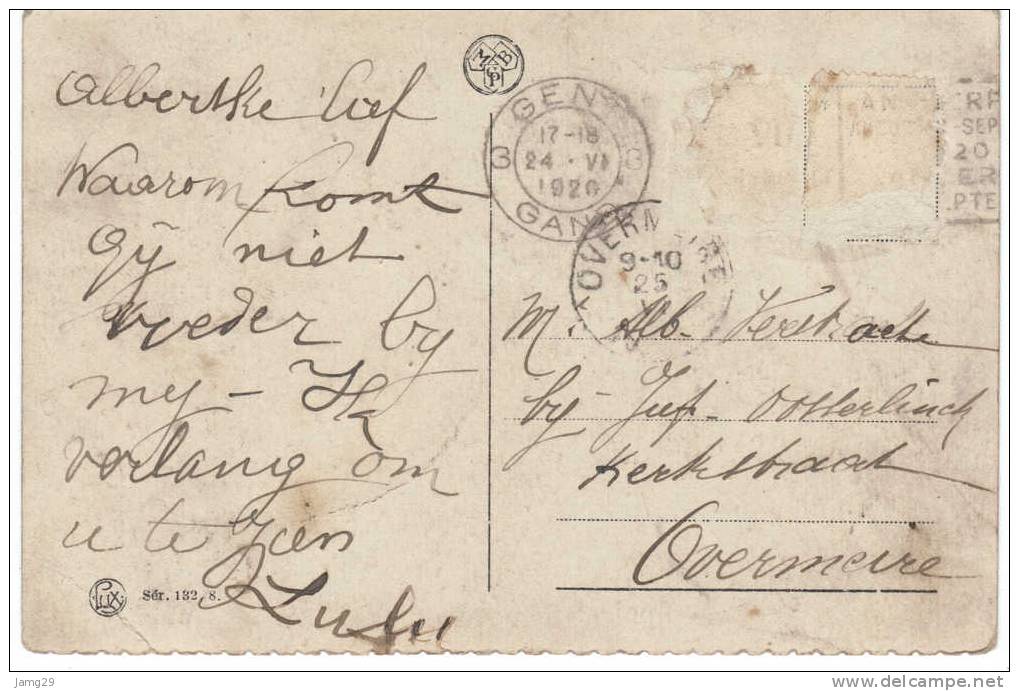 Albertke lief
Waarom komt
Gÿ niet
weder by
my - Ik
verlang om
u te zien
Lulu
MSPB
GENT
17-18
3 24·VI 3
1920
GAND
ANTWERP
SEP
20
ER
PTE
OVERMEIRE
9-10
25
M. Alb. Verstraete
by Juf. Oosterlinck
Kerkstraat
Overmeire
LUX
Sér. 132, 8.
Jamg29
www.delcampe.net